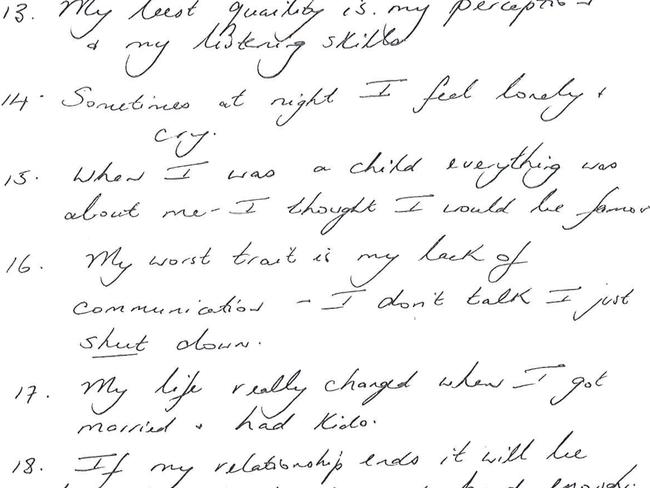 13. My best quality is my perception
& my listening skills
14. Sometimes at night I feel lonely &
cry.
15. When I was a child everything was
about me - I thought I would be famou
16. My worst trait is my lack of
communication - I don't talk I just
shut down.
17. My life really changed when I got
married & had kids.
18. If my relationship ends it will be
enough